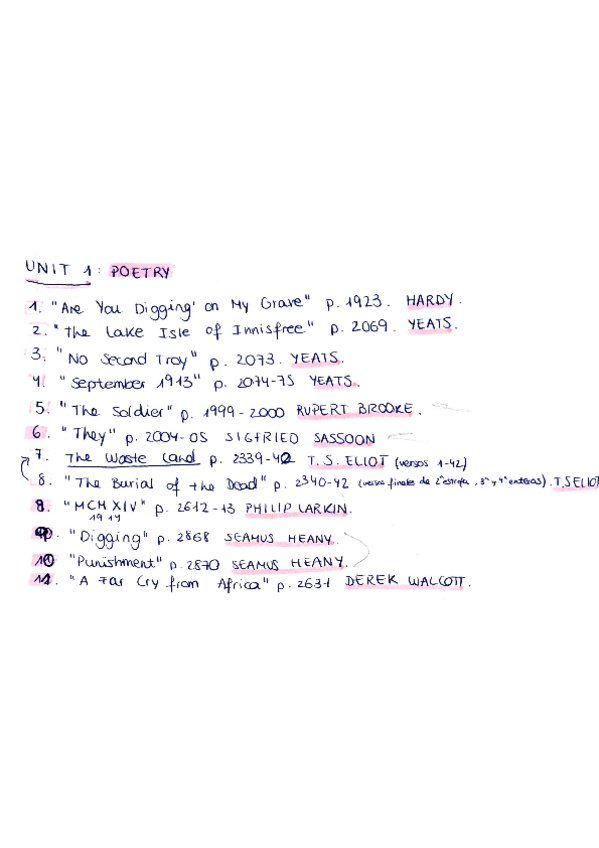 UNIT 1: POETRY
1. "Are You Digging' on My Grave" p. 1923. HARDY.
2. "The Lake Isle of Innisfree." p. 2069. YEATS.
3. "No Second Troy" p. 2073. YEATS.
4. "September 1913" p. 2074-75 YEATS.
5. "The Soldier" p. 1999-2000 RUPERT BROOKE.
6. "They" p. 2004-05 SIGFRIED SASSOON
7. The Waste Land p. 2339-42 T.S. ELIOT (versos 1-42)
8. "The Burial of the Dead" p. 2340-42 (versos finales de 2ª estrofa, 3ª y 4ª enteras). T.S ELIOT
8. "MCMXIV" p. 2612-13 PHILIP LARKIN.
1914
9. "Digging" p. 2868 SEAMUS HEANY.
10 "Punishment" p. 2870 SEAMUS HEANY.
11. "A Far Cry from Africa" p. 2631 DEREK WALCOTT.